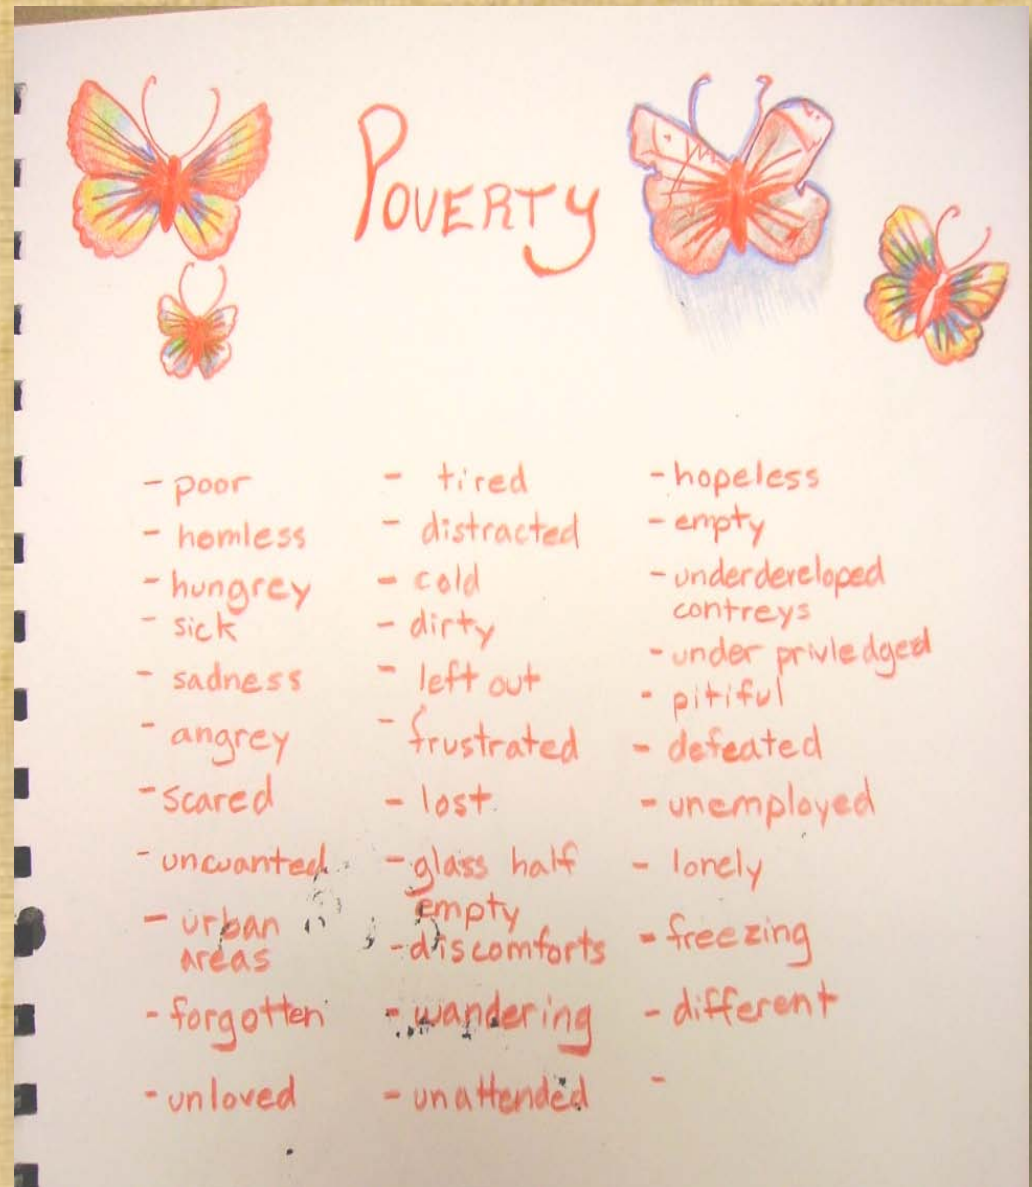 POVERTY
- poor
- homless
- hungrey
- sick
- sadness
- angrey
- scared
- unwanted
- urban
areas
- forgotten
- unloved
- tired
- distracted
- cold
- dirty
- left out
- frustrated
- lost
- glass half
empty
- discomforts
- wandering
- unattended
- hopeless
- empty
- underdeveloped
contreys
- under privledged
- pitiful
- defeated
- unemployed
- lonely
- freezing
- different
-